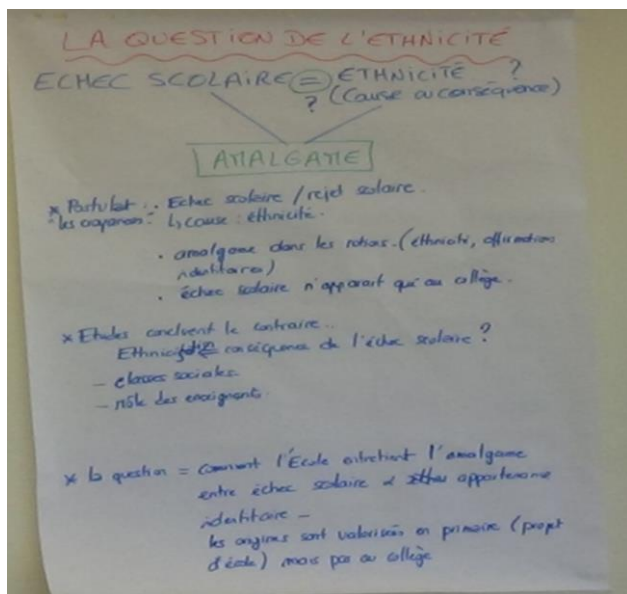 LA QUESTION DE L'ETHNICITÉ
ECHEC SCOLAIRE = ETHNICITÉ ?
? (Cause ou conséquence)
AMALGAME
* Postulat : . Echec scolaire / rejet scolaire.
"les croyances" ↳ cause : éthnicité.
. amalgame dans les notions. (éthnicité, affirmations
identitaires)
. échec scolaire n'apparait qu'au collège.
* Etudes concluent le contraire..
Ethnicité conséquence de l'échec scolaire ?
- classes sociales.
- rôle des enseignants.
* la question = Comment l'École entretient l'amalgame
entre échec scolaire & appartenance
identitaire -
les origines sont valorisées en primaire (projet
d'école) mais pas au collège